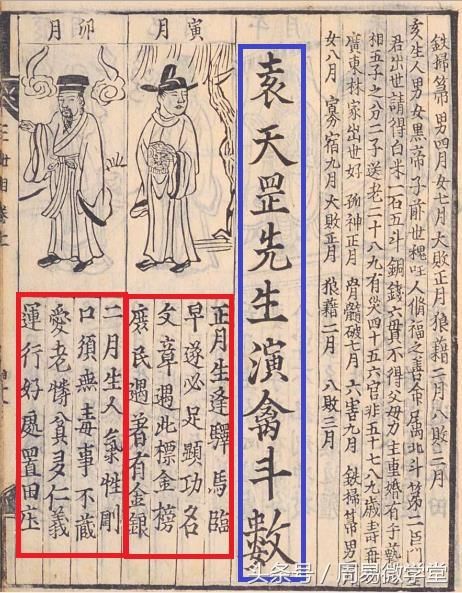 鉄掃箒 男四月 女七月 大敗正月 狼藉二月 八敗二月
亥生人男女黑帝子前世 人脩福之善命属北斗第二巨門
君出世請得白米一石五斗銅錢六貫不得父母力主重婚有手執
相五子之分二子送老二十八九有災四十五六官非五十七八九歲壽再
廣東林家出世好 孤神正月 骨髓破七月 六害九月 鉄掃箒男
女八月 寡宿九月 大敗正月 狼藉二月 八敗三月
袁天罡先生演禽斗數
寅月
正月生逢驛馬臨
早遂必足顯功名
文章遇此標金榜
庶民遇着有金銀
卯月
二月生人氣性剛
口須無毒事不藏
愛老憐貧多仁義
運行好處置田庄
三世相卷上
头条号 / 周易微学堂